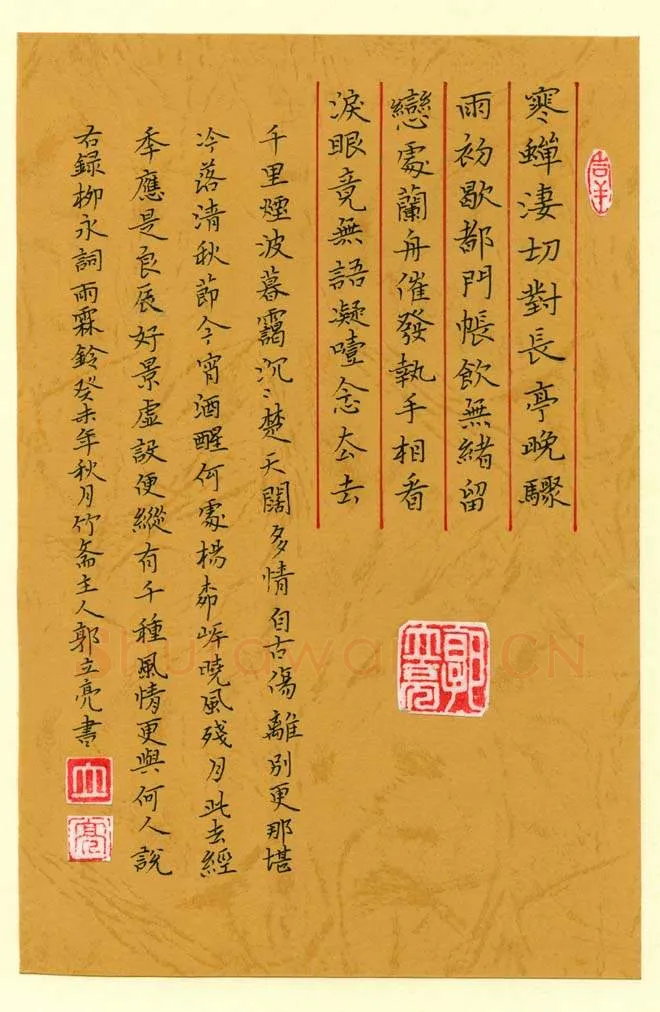 吉羊
寒蟬淒切對長亭晚驟
雨初歇都門帳飲無緒留
戀處蘭舟催發執手相看
淚眼竟無語凝噎念厺去
千里煙波暮靄沉〻楚天闊多情自古傷離別更那堪
冷落清秋節今宵酒醒何處楊桺岸曉風殘月此去經
秊應是良辰好景虛設便縱有千種風情更與何人說
右録柳永詞雨霖鈴癸未年秋月竹齋主人郭立亮書
立
亮
郭立亮